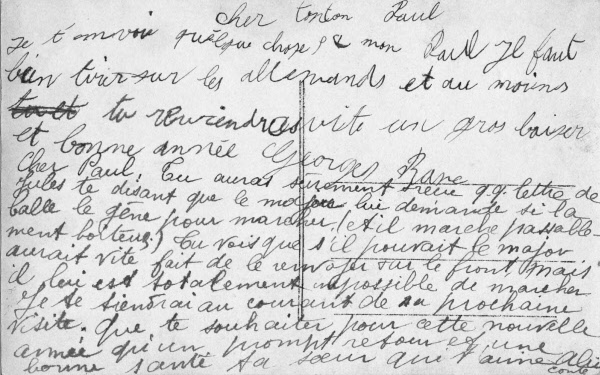 Cher tonton Paul
Je t'envoie quelque chose mon Paul Il faut
bien tirer sur les allemands et au moins
tu reviendras vite un gros baiser
et bonne année Georges
Cher Paul. Tu auras sûrement reçu qq. lettre de
Jules te disant que le major lui demande si la
balle le gêne pour marcher. (et il marche passable-
ment boiteux.) Tu vois que s'il pouvait le major
aurait vite fait de le renvoyer sur le front mais
il lui est totalement impossible de marcher
Je te tiendrai au courant de sa prochaine
visite. Que te souhaiter pour cette nouvelle
année qu'un prompt retour et une
bonne santé ta sœur qui t'aime